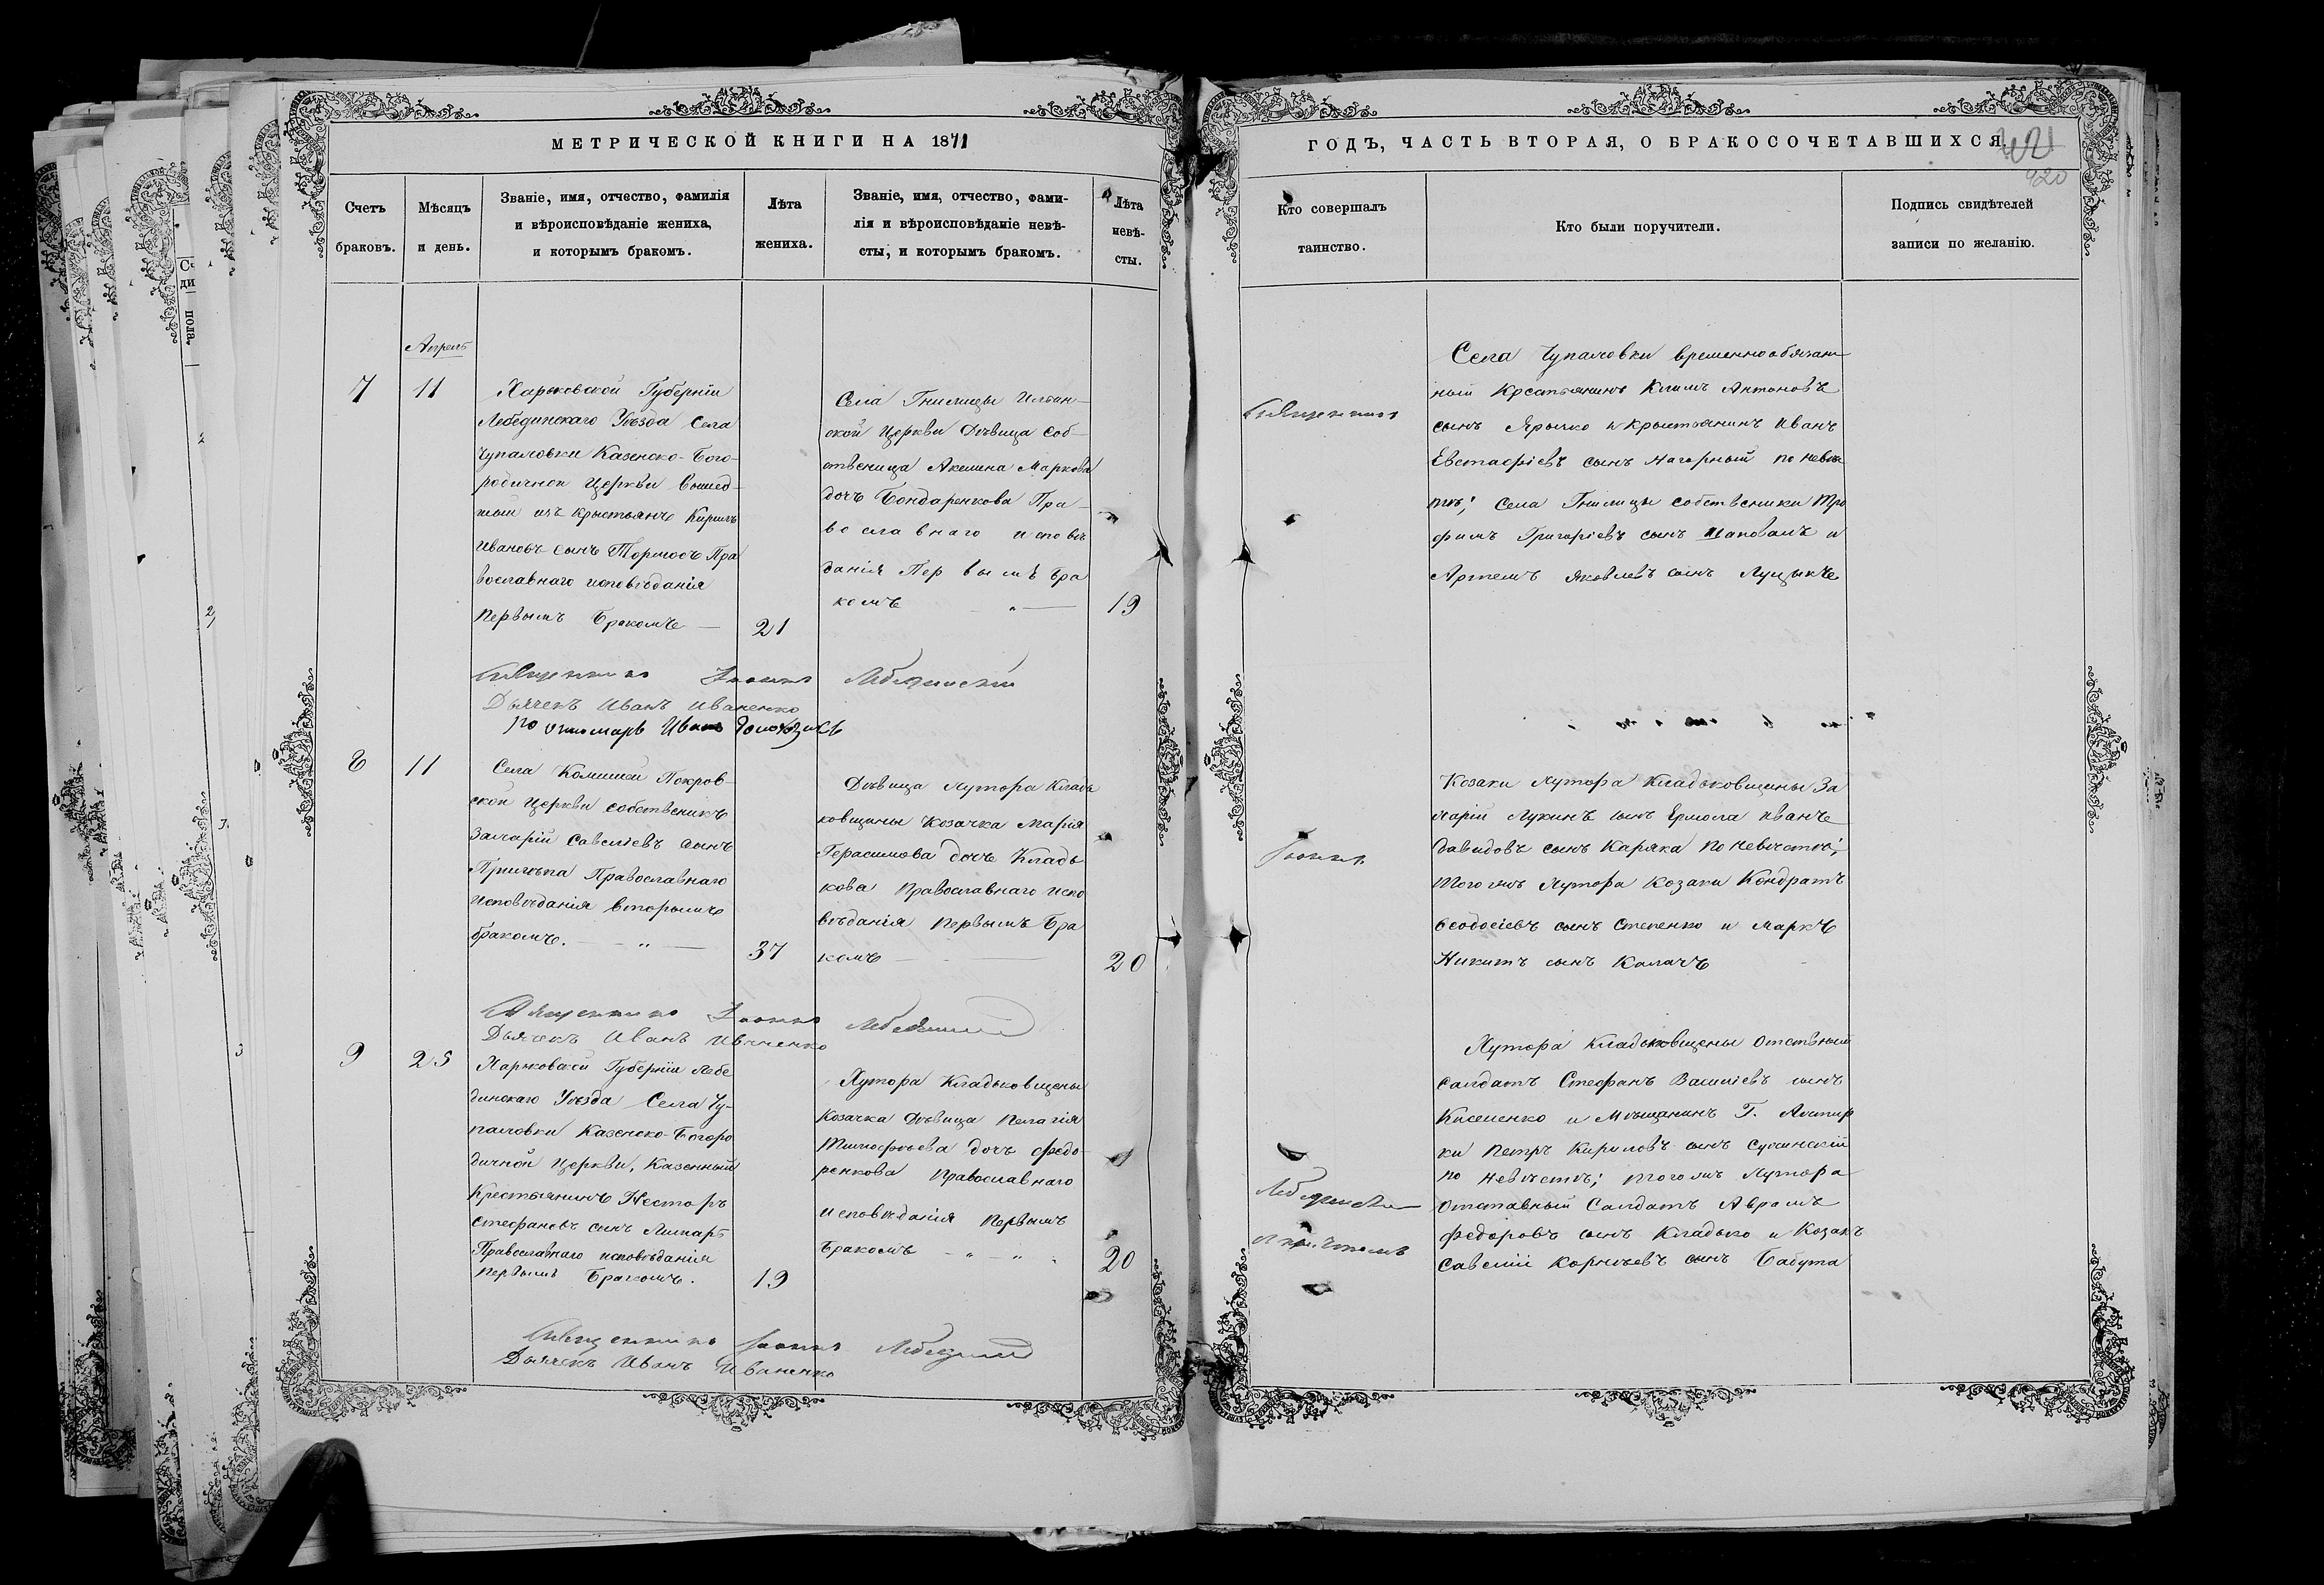 МЕТРИЧЕСКОЙ КНИГИ НА 1871
Счетъ браковъ.
Мѣсяцъ и день.
Званіе, имя, отчество, фамилія
и вѣроисповѣданіе жениха,
и которымъ бракомъ.
Лѣта жениха.
Званіе, имя, отчество, фами-
лія и вѣроисповѣданіе невѣ-
сты, и которымъ бракомъ.
Лѣта невѣ-
сты.
Апрель
7
11
Харьковской Губерніи
Лебединскаго Уѣзда Села
Чупаховки Казенско-Бого-
родичной Церкви вышед-
шый изъ крестьянъ Кирилъ
Ивановъ сынъ Тормосъ Пра
вославнаго исповѣданія
Первымъ Бракомъ
21
Села Гнилицы Ильин-
ской Церкви Дѣвица Соб-
ственица Акилина Маркова
дочь Бондаренкова Пра-
вославнаго исповѣ
данія Первымъ Бра
комъ
19
Священникъ Іоаннъ Лебединскій
Дьячекъ Иванъ Иваненко
Пономарь Иванъ
8
11
Села Комышей Покров-
ской Церкви собственикъ
Захарій Савеліевъ сынъ
Прилѣпа Православнаго
Исповѣданія вторымъ
бракомъ.
37
Дѣвица Хутора Кладь
ковщины Козачка Марія
Герасимова дочь Кладь
кова Православнаго испо
вѣданія Первымъ Бра
комъ
20
Священникъ Іоаннъ Лебединскій
Дьячекъ Иванъ Иваненко
9
25
Харьковской Губерніи Лебе
динскаго Уѣзда Села Чу-
паховки Казенско-Богоро
дичной Церкви, Казенный
Крестьянинъ Несторъ
Стефановъ сынъ Лихарь
Православнаго исповѣданія
Первымъ Бракомъ.
19
Хутора Кладьковщены
Козачка Дѣвица Пелагія
Тимофѣева дочь Федо-
ренкова Православнаго
исповѣданія Первымъ
Бракомъ
20
Священникъ Іоаннъ Лебединскій
Дьячекъ Иванъ Иваненко
ГОДЪ, ЧАСТЬ ВТОРАЯ, О БРАКОСОЧЕТАВШИХСЯ
421
420
Кто совершалъ
таинство.
Кто были поручители.
Подпись свидѣтелей
записи по желанію.
Священникъ
Села Чупаховки временнообязан
ный Крестьянинъ Климъ Антоновъ
сынъ Ярычко и крестьянинъ Иванъ
Евстафіевъ сынъ Нагорный по невѣс
тѣ; Села Гнилицы собственики Тро
фимъ Григоріевъ сынъ Шаповалъ и
Артемъ Яковлевъ сынъ Луцыкъ
Іоаннъ
Козаки Хутора Кладьковщины За
харій Лукинъ сынъ Ермола Иванъ
Давидовъ сынъ Каряка по невѣстѣ;
того жъ Хутора Козаки Кондратъ
Ѳеодосіевъ сынъ Степенко и Маркъ
Никитъ сынъ Калачъ
Лебединскій
и причтомъ
Хутора Кладьковщены Отставный
Салдатъ Стефанъ Василіевъ сынъ
Киселенко и Мѣщанинъ Г. Ахтыр
ки Петръ Кириловъ сынъ Сухинскій
по невѣстѣ; того жъ Хутора
Отставный Салдатъ Аврамъ
Федоровъ сынъ Кладько и Козакъ
Савелій Корнѣевъ сынъ Бабута